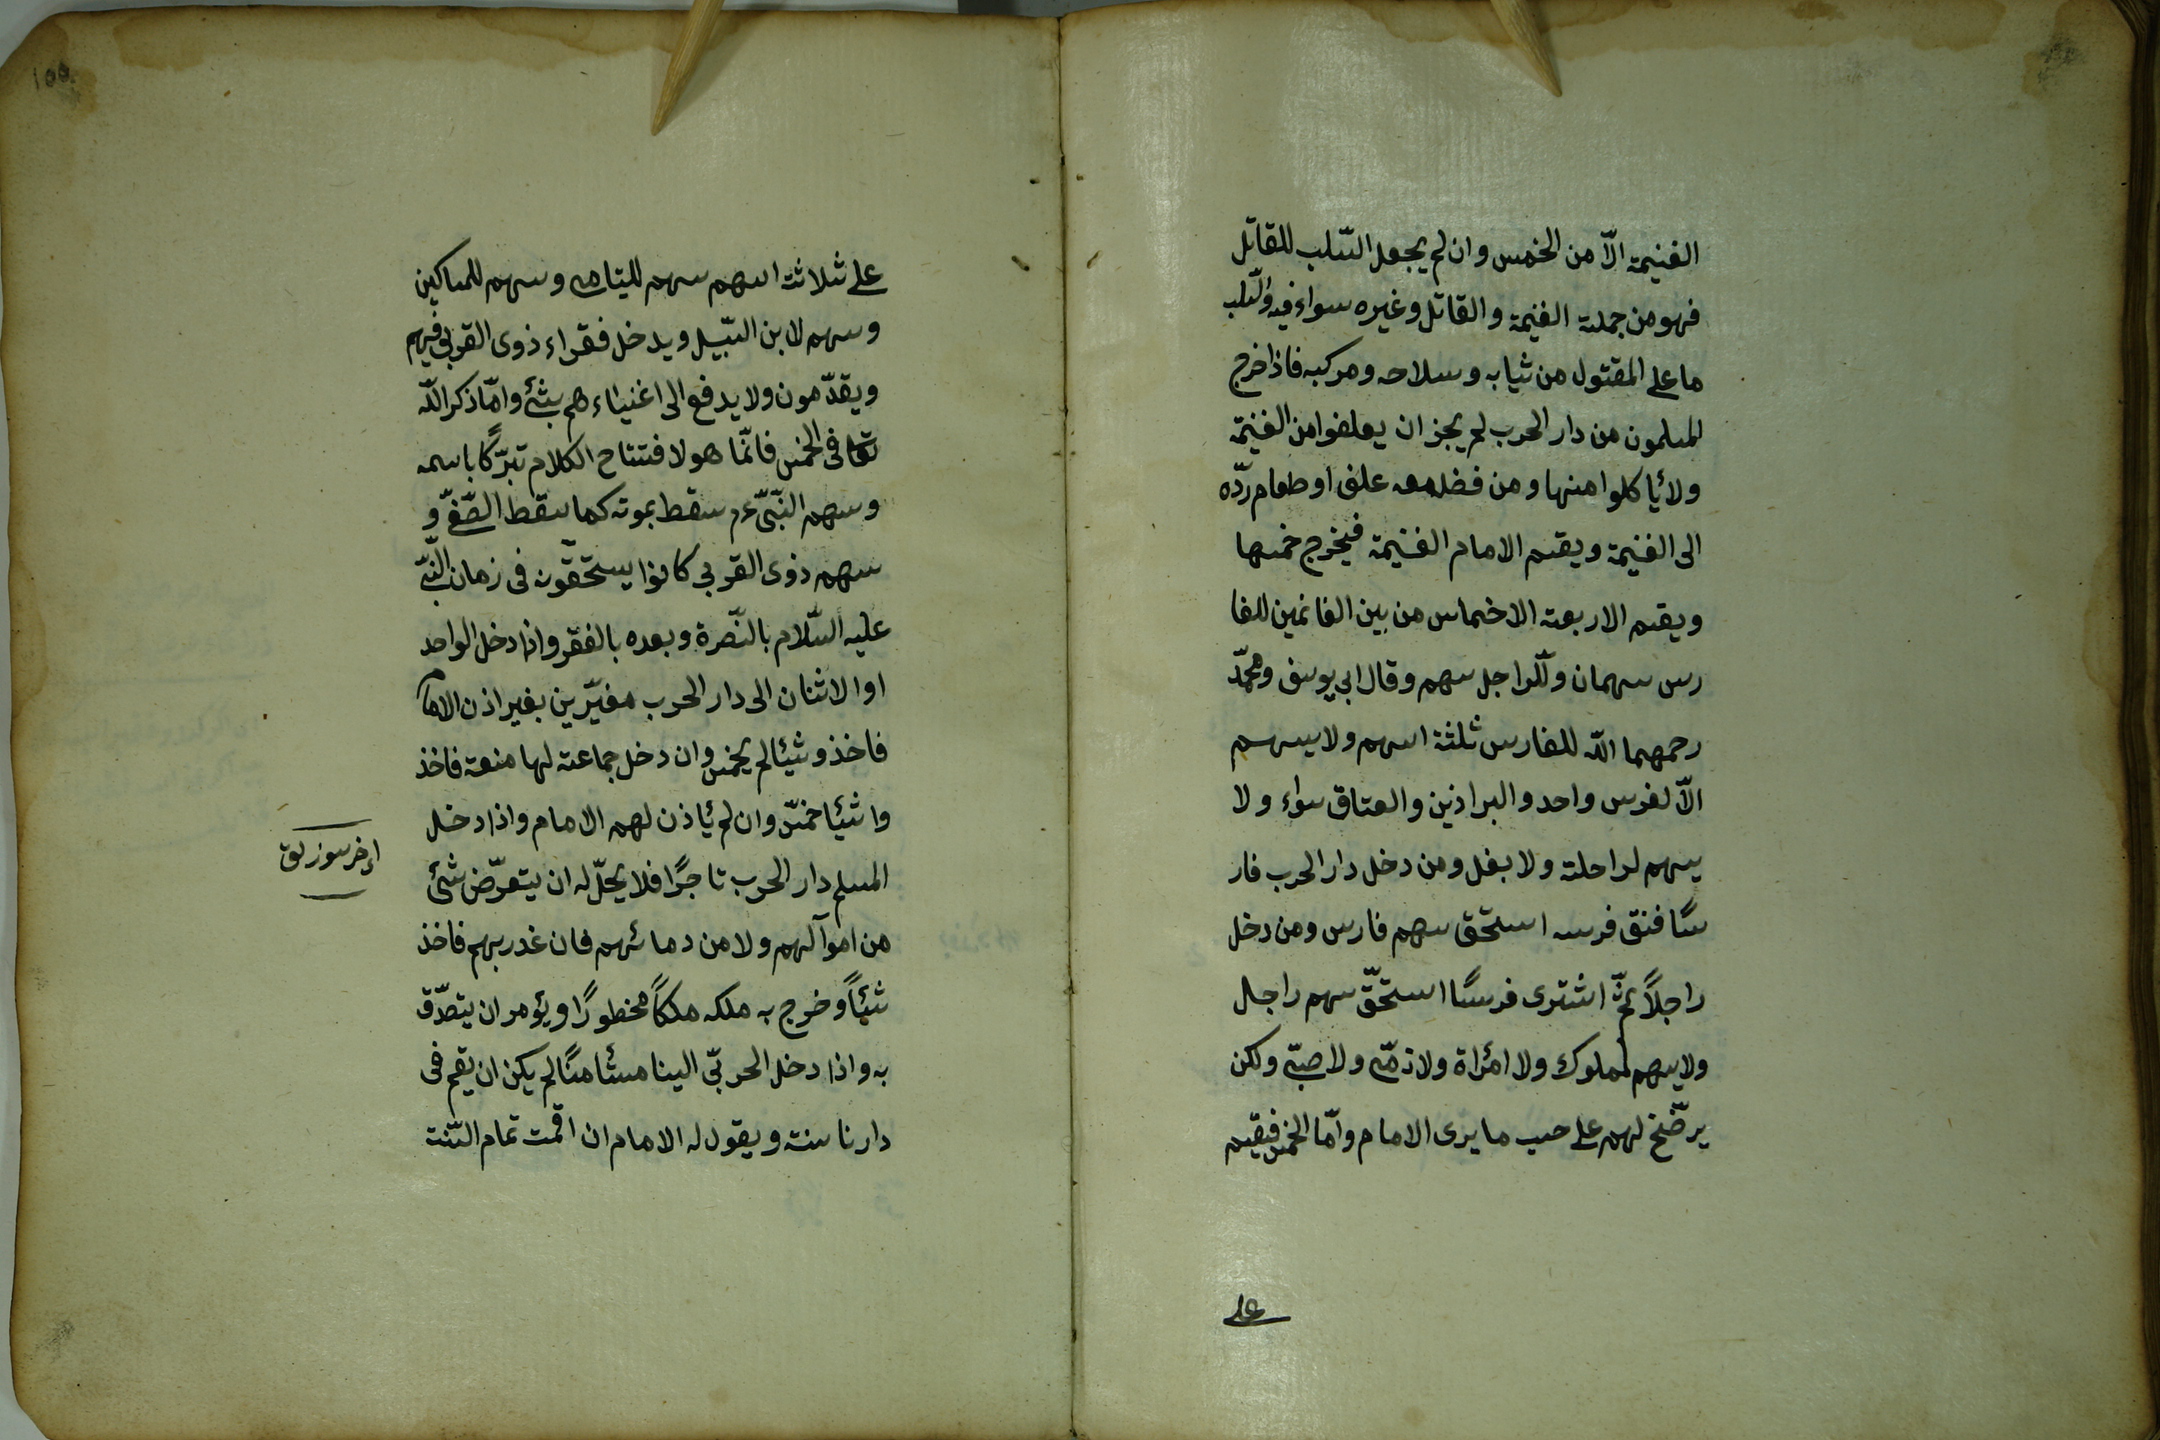 الغنيمة الّا من الخمس وان لم يجعل السّلب للقاتل
فهو من جملة الغنيمة والقاتل وغيره سواء فيه والسّلب
ما على المقتول من ثيابه وسلاحه ومركبه فاذا خرج
المسلمون من دار الحرب لم يجز ان يعلفوا من الغنيمة
ولا ئاكلوا منها ومن فضل معه علف او طعام ردّه
الى الغنيمة ويقسم الامام الغنيمة فيخرج خمسها
ويقسم الاربعة الاخماس من بين الغانمين للفا
رس سهمان وللّراجل سهم وقال ابي يوسف ومحمّد
رحمهما اللّه للفارس ثلثة اسهم ولا يسهم
الّا لفرس واحد والبراذين والعتاق سواء ولا
يسهم لراحلة ولا بغل ومن دخل دار الحرب فار
سًا فنفق فرسه استحق سهم فارس ومن دخل
راجلاً ثمّ اشترى فرسًا استحقّ سهم راجل
ولا يسهم لمملوك ولا امرٔاة ولا ذمّى ولا صبّى ولكن
يرضّخ لهم على حسب ما يرى الامام وامّا الخمس فيقسم
على
١٥٥
على ثلاثة اسهم سهم لليتامى وسهم للمساكين
وسهم لابن السّبيل ويدخل فقراء ذوى القربى فيهم
ويقدّمون ولا يدفع الى اغنياءهم بشئ وامّا ذكر اللّه
تعا فى الخمس فانّما هو لافتتاح الكلام تبرّكًا باسمه
وسهم النّبىّ ءم سقط بموته كما سقط الصّفىّ و
سهم ذوى القربى كانوا يستحقّونه فى زمان النّبىّ
عليه السّلام بالنّصرة وبعده بالفقر واذا دخل الواحد
اوالاثنان الى دار الحرب مغيّرين بغير اذن الامام
فاخذو شئيا لم يخمس وان دخل جماعة لها منعة فاخذ
وا شئيا خمّس وان لم ئاذن لهم الامام واذا دخل
المسلم دار الحرب تاجرًا فلا يحلّ له ان يتعرّض شئ
من اموآلهم ولا من دمائهم فان غدر بهم فاخذ
شئياً وخرج به ملكه ملكاً محظورًا ويؤمر ان يتصدّق
به واذا دخل الحربىّ الينا مستٔامنًا لم يكن ان يقيم فى
دارنا سنة ويقول له الامام ان اقمت تمام السّنة